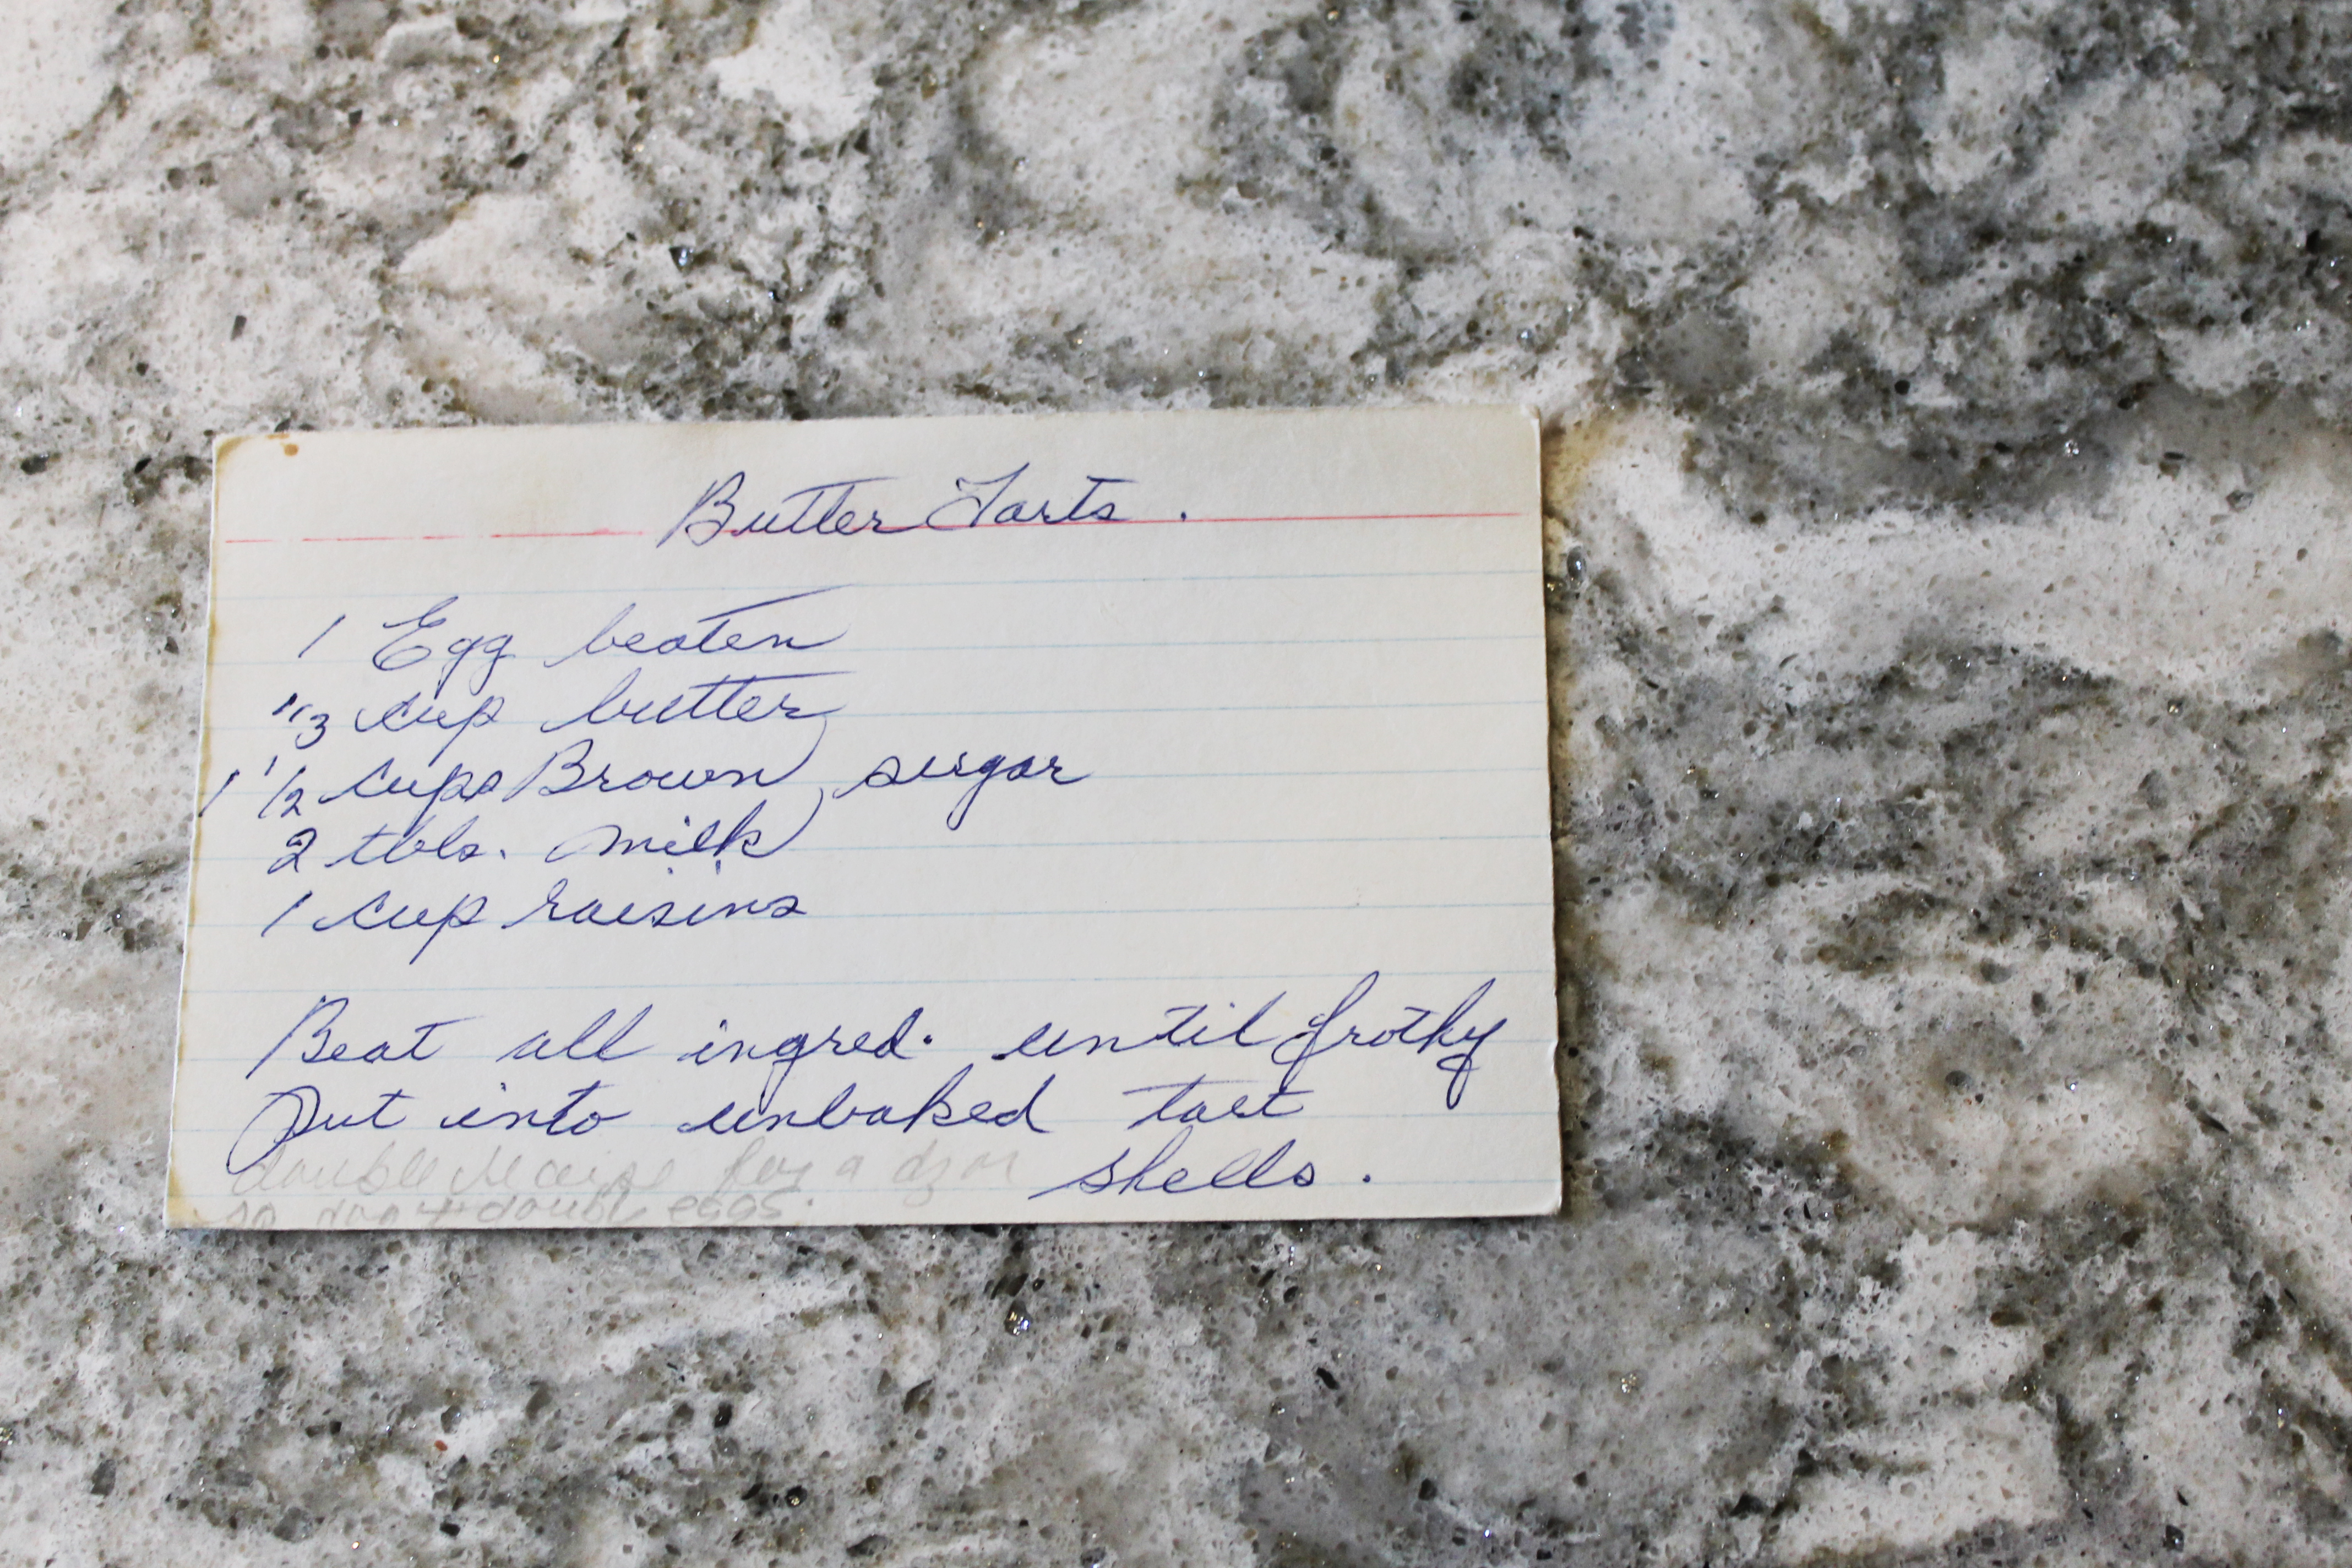 Butter Tarts.
1 Egg beaten
1/3 cup butter
1 1/2 cups Brown sugar
2 tbls. milk
1 cup raisins
Beat all ingred. until frothy
Put into unbaked tart
shells.
double recipe for a
double eggs.